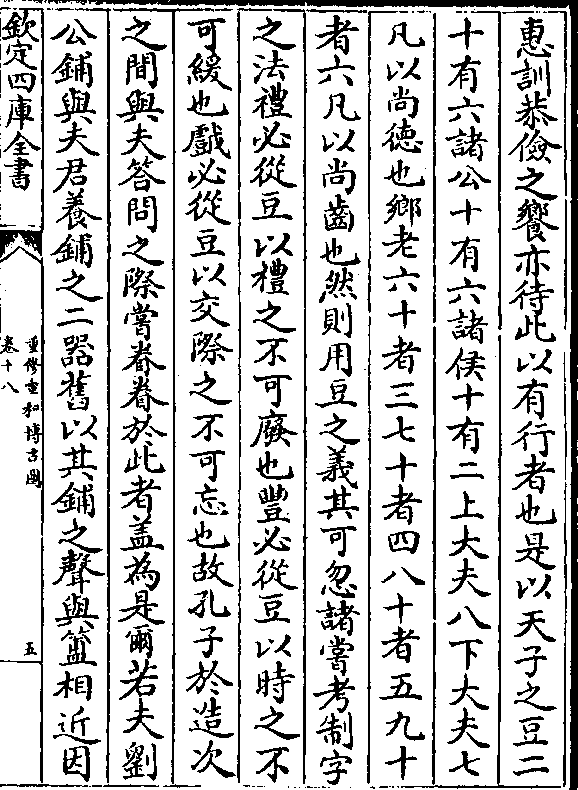 惠訓恭儉之饗亦待此以有行者也是以天子之豆二
十有六諸公十有六諸侯十有二上大夫八下大夫七
凡以尚徳也鄉老六十者三七十者四八十者五九十
者六凡以尚齒也然則用豆之義其可忽諸嘗考制字
之法禮必從豆以禮之不可廢也豐必從豆以時之不
可緩也戲必從豆以交際之不可忘也故孔子於造次
之間與夫答問之際嘗眷眷於此者盖為是爾若夫劉
公鋪與夫君養鋪之二器舊以其鋪之聲與簠相近因
欽定四庫全書
重修宣和博古圖
卷十八
五